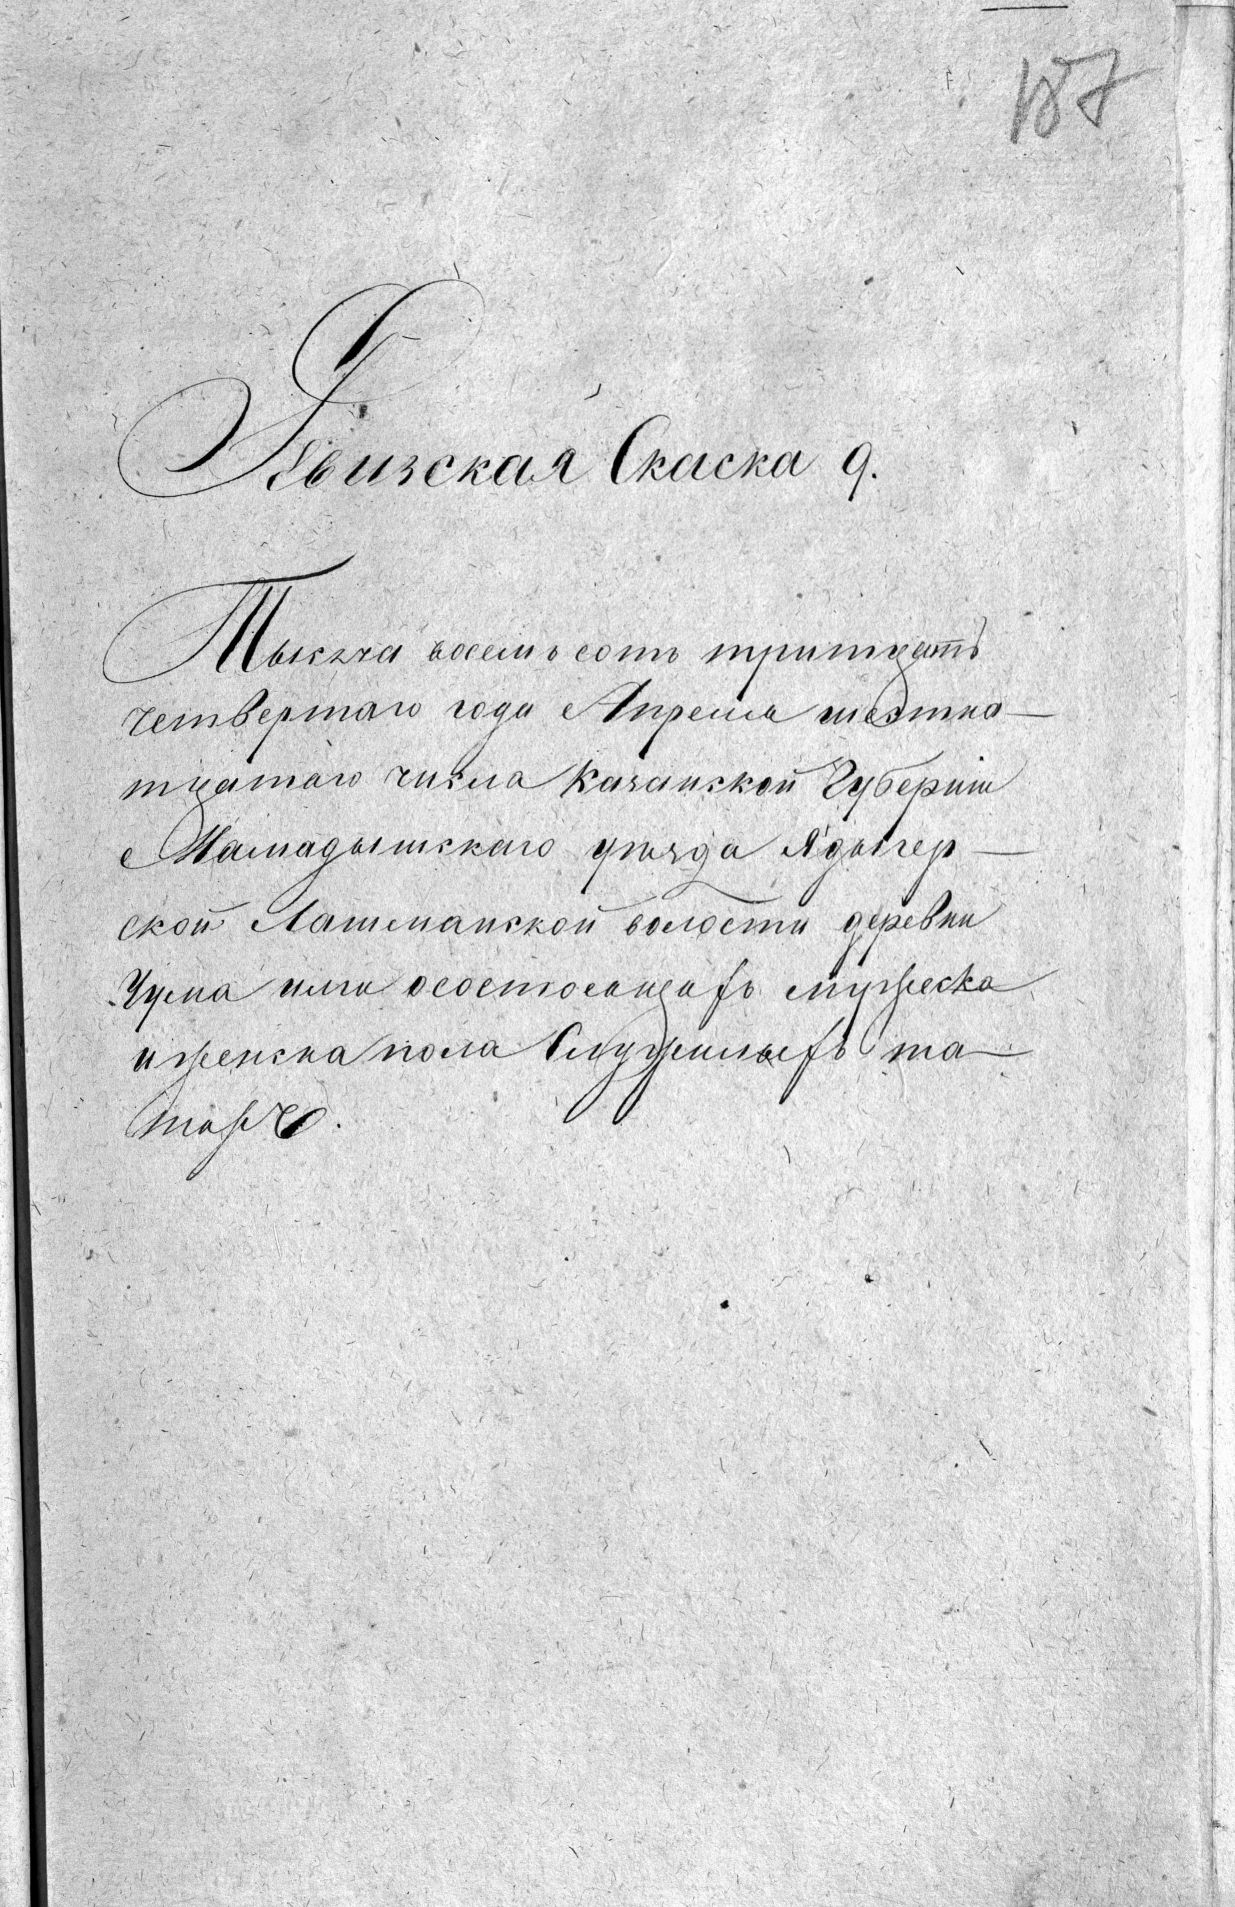 187
Ревизская Скаска 9.
Тысяча восемь сотъ тритцать
четвертаго года Апреля шестна-
тцатаго числа Казанской Губернии
Мамадышскаго уѣзда Ядыгер-
ской Лашманской волости деревни
Чума илги осостоящихъ мужеска
и женска пола Служилыхъ та-
таръ.